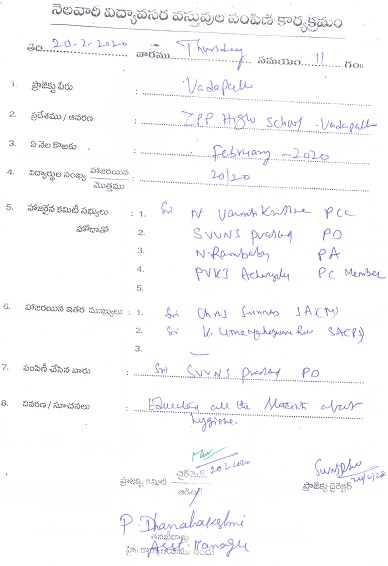 నెలవారి విద్యావసర వస్తువుల పంపిణి కార్యక్రమం
తేది 20-2-2020 వారము Thursday సమయం 11 గం॥
1. ప్రాజెక్టు పేరు : Vadapalli
2. ప్రదేశము / ఆవరణ : ZPP High School - Vadapalli
3. ఏ నెల కొఱకు : February - 2020
4. విద్యార్థుల సంఖ్య హాజరయిన / మొత్తము : 20/20
5. హాజరైన కమిటీ సభ్యులు : 1. Sri N Vamsi Krishna PCC
హోదాతో 2. SVVNS Prasad PO
3. N. Rambabu PA
4. PVKJ PC Member
5.
6. హాజరయిన ఇతర ముఖ్యులు : 1. Sri SA(M)
2. Sri K. Umamaheswara Rao SA(PS)
3. —
7. పంపిణీ చేసిన వారు : Sri SVVNS Prasad PO
8. వివరణ / సూచనలు : Educated all the Students about
hygiene.
ప్రాజెక్టు కమిటీ ఛైర్మెన్
ప్రాజెక్టు డైరెక్టర్
P. Dhanalakshmi
Asst. Manager